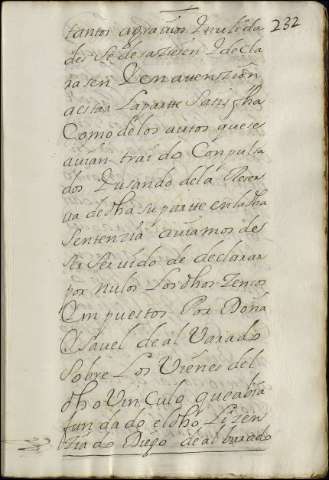 232
tantos agravios Y nuleda
des se desaziesen Y decla
rasen Y en avenszión
a estar la parte satisfha
Como de los autos que se
avían traido Conpulsa
dos Y usando de la Reser
va de dha su parte en la dha
Sentenzia avíamos de
ser servido de declarar
por nulos Los dhos Zensos
Ympuestos Por Doña
Ysavel de alvarado
Sobre Los Vienes del
dho Vinculo que abía
fundado el dho Lizen
ziado Diego de albarado